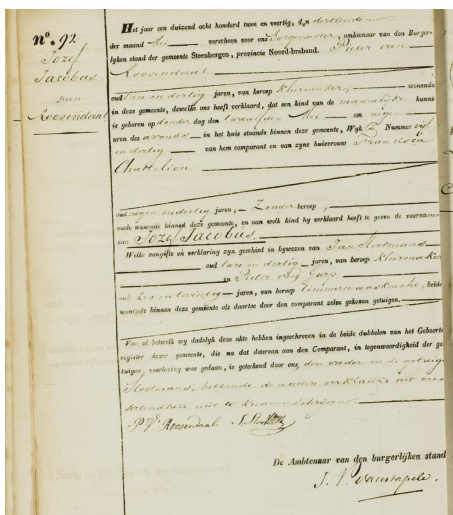 nº. 92.
Jozef
Jacobus
van
Roosendaal
Het jaar een duizend acht honderd twee en veertig, den dertienden
der maand Mei verscheen voor ons Burgemeester, ambtenaar van den Burger-
lyken stand der gemeente Steenbergen, provincie Noord-braband. Pieter van
Roosendaal
oud twee en dertig jaren, van beroep kleermaker, wonende
in deze gemeente, dewelke ons heeft verklaard, dat een kind van de mannelijke kunne
is geboren op donder dag den twaalfden Mei om negen
uren des avonds in het huis staande binnen deze gemeente, Wyk Nummer vijf
en dertig van hem comparant en van zyne huisvrouw Francisca
Chattelion
oud negen en dertig jaren, Zonder beroep,
mede wonende binnen deze gemeente, en aan welk kind hy verklaard heeft te geven de voornamen
van Jozef Jacobus
Welke aangifte en verklaring zyn geschied in bywezen van Jan Slootmans
oud twee en dertig jaren, van beroep kleermaker
en Pieter van Gurp
oud Zes en twintig jaren, van beroep timmermansknecht, beide
wonende binnen deze gemeente als daartoe door den comparant zelve gekozen getuigen.
Van al hetwelk wy dadelyk deze akte hebben ingeschreven in de beide dubbelen van het Geboorte
register dezer gemeente, die na dat daarvan aan den Comparant, in tegenwoordigheid der ge
tuigen, voorlezing was gedaan, is geteekend door ons, den vader en de getuige
Slootmans, hebbende de andere verklaard uit oor
niet te kunnen schrijven
P. V. Roosendaal J. Slootmans
De Ambtenaar van den burgerlijken stand
J. V.